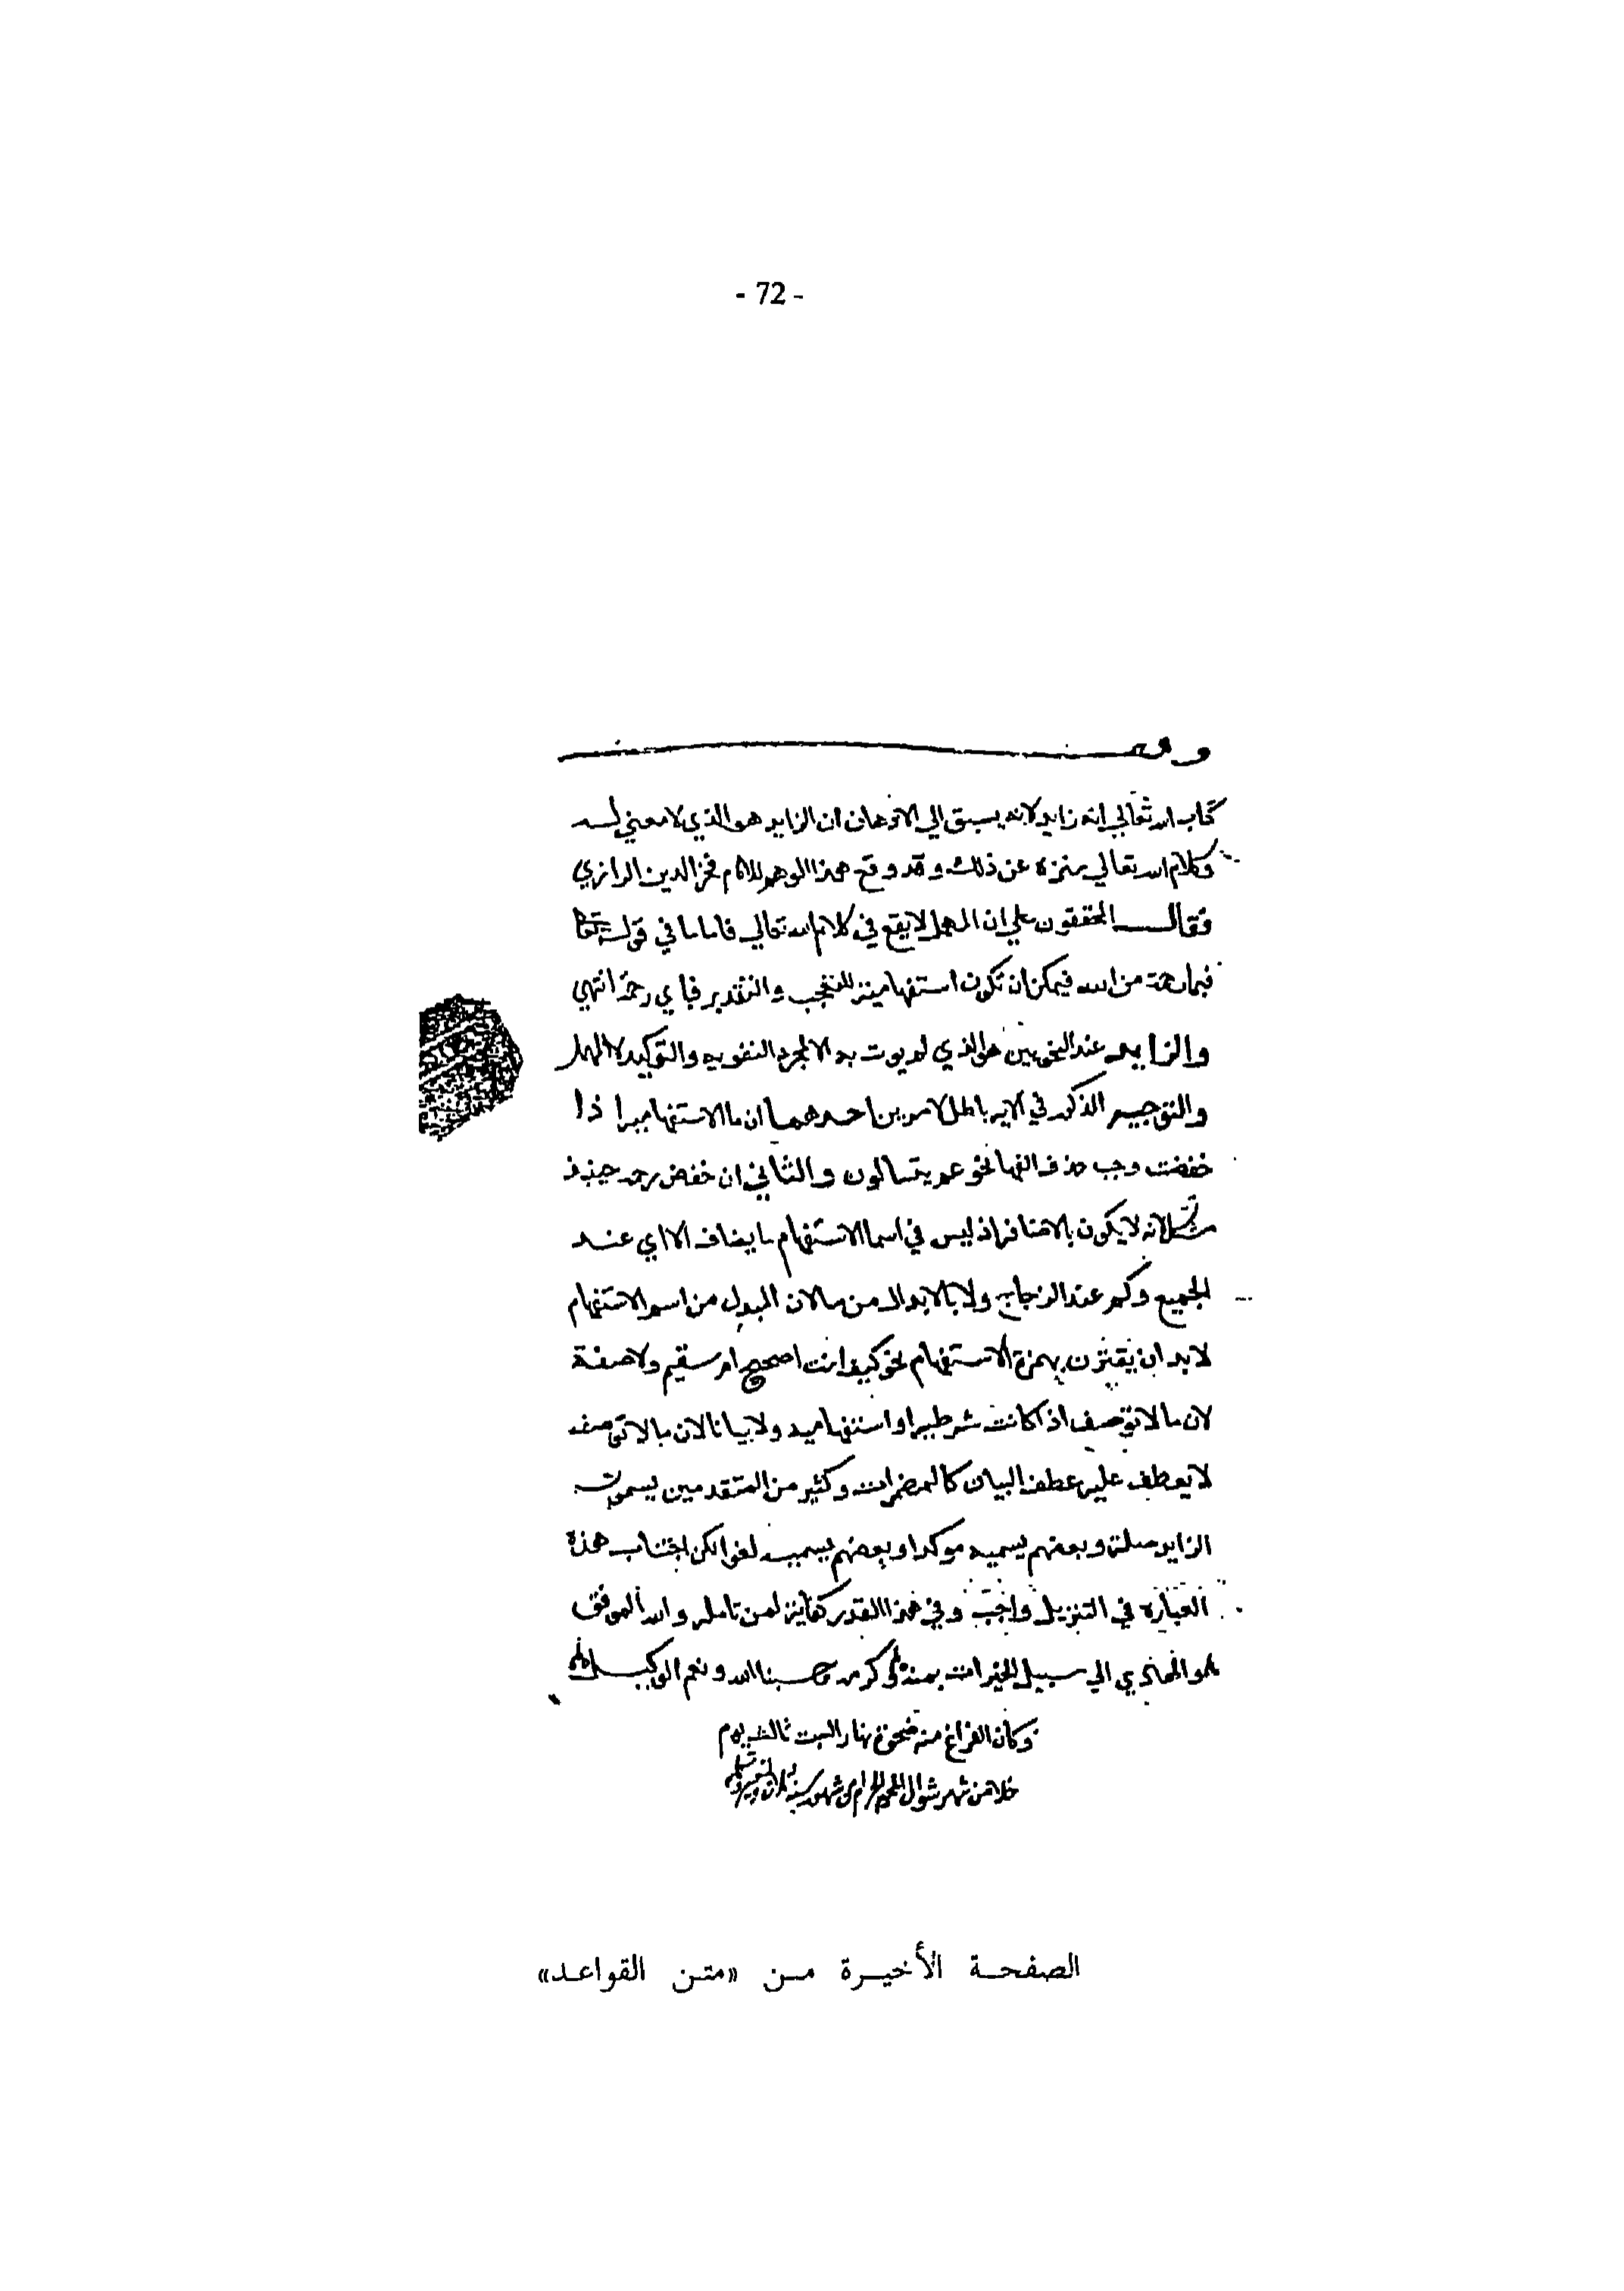 - 72 -
كتاب الله تعالي انه زايد لانه يسبق الي الاذهان ان الزايد هو الذي لا معني له
وكلام الله تعالي منزه عن ذلك وقد وقع هذا الوهم للامام فخر الدين الرازي
فقال المحققون علي ان المهمل لا يقع في كلام الله تعالي فاما ما في قوله تعالي
فبما رحمة من الله فيمكن ان تكون استفهامية للتعجب والتقدير فباي رحمة انتهي
والزايد عند النحويين هو الذي لم يوت به الا لمجرد التقوية والتوكيد لا المهمل
والتوجيه المذكور في الاية باطل لامرين احدهما ان ما الاستفهامية اذا
خفضت وجب حذف الفها نحو عم يتسالون والثاني ان خفض رحمة حينيذ
مشكل لانه لا يكون بالاضافة اذ ليس في اسما الاستفهام ما يضاف الا اي عند
الجميع وكم عند الزجاج ولا بالابدال من ما لان المبدل من اسم الاستفهام
لا بد ان يقترن بهمزة الاستفهام نحو كيف انت اصحيح ام سقيم ولا صفة
لان ما لا توصف اذا كانت شرطية او استفهامية ولا بيانا لان ما لا توصف
لا يعطف عليه عطف البيان كالمضمرات وكثير من المتقدمين يسمون
الزايد صلة وبعضهم يسميه موكدا وبعضهم يسميه لغوا لكن اجتناب هذه
العبارة في التنزيل واجب وفي هذا القدر كفاية لمن تامله والله الموفق
هو الهادي الي سبيل الخيرات بمنه وكرمه حسبنا الله ونعم الوكيل
وكان الفراغ منه ضحوة نهار السبت ثالث يوم
خلا من شهر شوال
الصفحة الأخيرة من «متن القواعد»